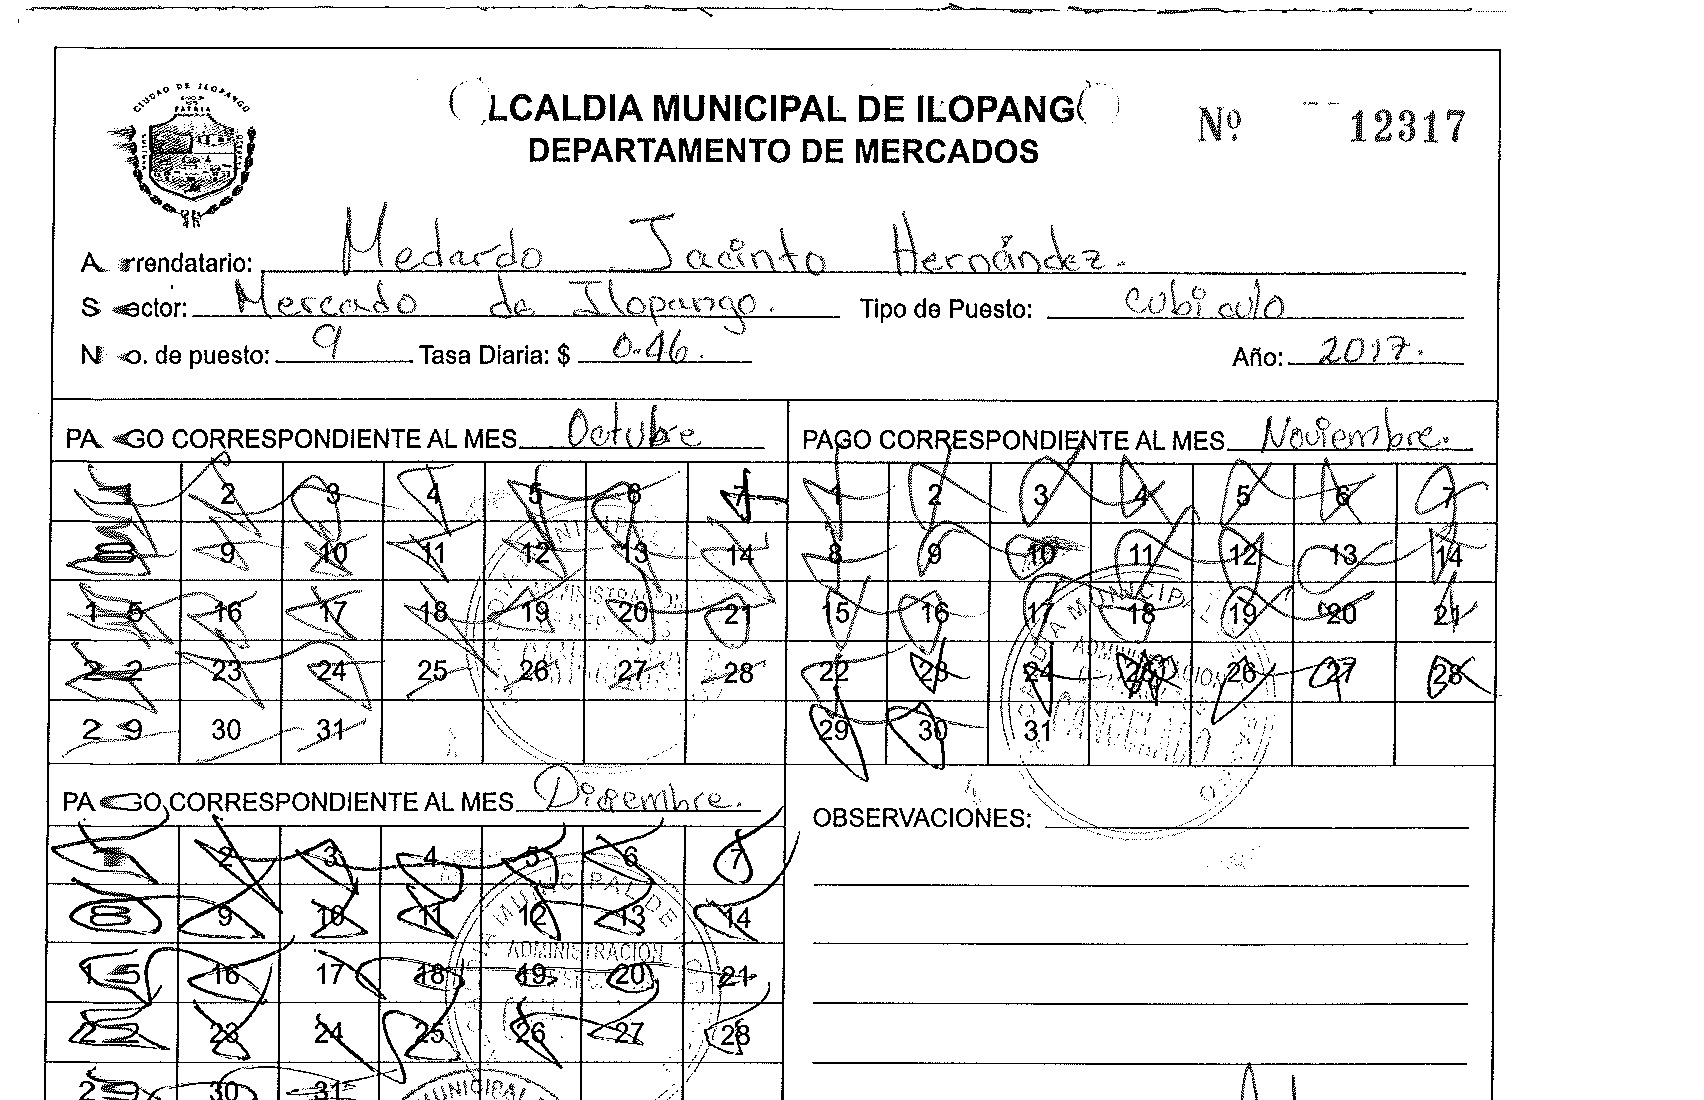 CIUDAD DE ILOPANGO
PATRIA
LCALDIA MUNICIPAL DE ILOPANG
DEPARTAMENTO DE MERCADOS
Nº 12317
Arrendatario: Medardo Jacinto Hernández.
Sector: Mercado de Ilopango. Tipo de Puesto: cubiculo
No. de puesto: 9 Tasa Diaria: $ 0.46. Año: 2017.
PAGO CORRESPONDIENTE AL MES Octubre
1 2 3 4 5 6 7
8 9 10 11 12 13 14
15 16 17 18 19 20 21
22 23 24 25 26 27 28
29 30 31
PAGO CORRESPONDIENTE AL MES Noviembre.
1 2 3 4 5 6 7
8 9 10 11 12 13 14
15 16 17 18 19 20 21
22 23 24 25 26 27 28
29 30 31
MUNICIPAL
ADMINISTRACION
CANCELADO
PAGO CORRESPONDIENTE AL MES Diciembre.
1 2 3 4 5 6 7
8 9 10 11 12 13 14
15 16 17 18 19 20 21
22 23 24 25 26 27 28
29 30 31
MUNICIPAL DE
ADMINISTRACION
MUNICIPAL
OBSERVACIONES: